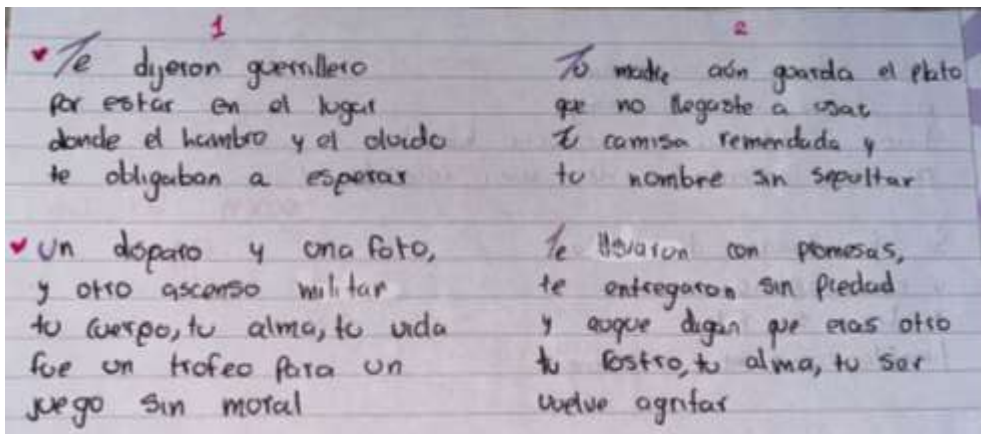 1
Te dijeron guerrillero
por estar en el lugar
donde el hambre y el olvido
te obligaban a esperar
Un disparo y una foto,
y otro ascenso militar
tu cuerpo, tu alma, tu vida
fue un trofeo para un
juego sin moral
2
Tu madre aún guarda el plato
que no llegaste a usar
tu camisa remendada y
tu nombre sin sepultar
Te llevaron con promesas,
te entregaron sin piedad
y auque digan que eras otro
tu rostro, tu alma, tu ser
vuelve agritar